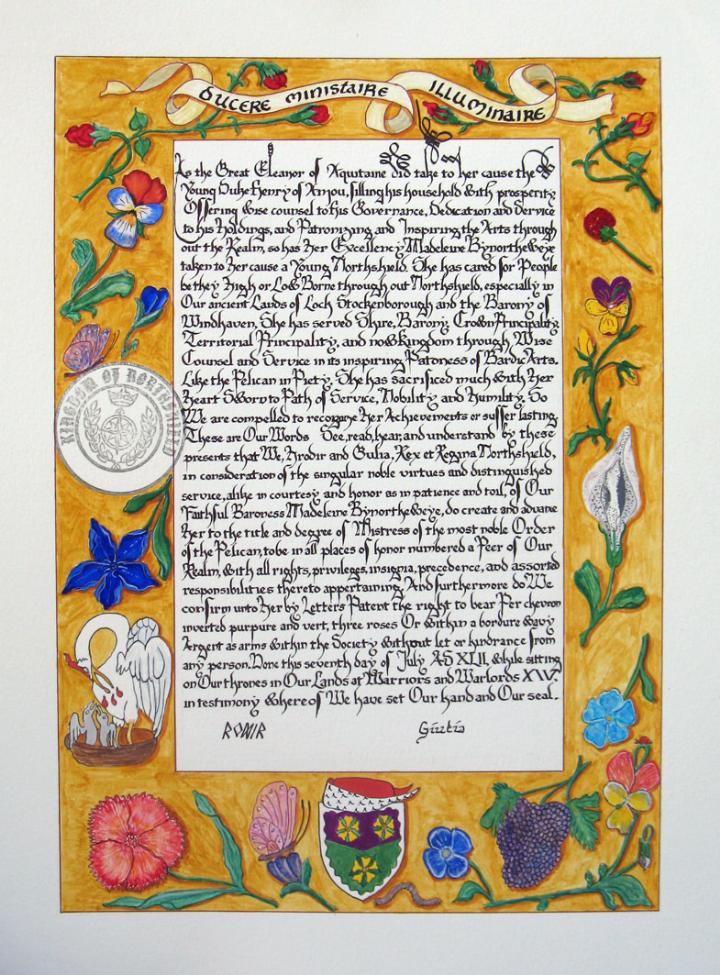 DUCERE MINISTAIRE ILLUMINAIRE
As the Great Eleanor of Aquitaine did take to her cause the
Young Duke Henry of Anjou, filling his household with prosperity
Offering wise counsel to his Governance, Dedication and Service
to his Holdings, and Patronizing and Inspiring the Arts through
out the Realm, so has Her Excellency Madeleine Bynortheweye
taken to Her cause a Young Northshield. She has cared for People
be they High or Low Borne through out Northshield, especially in
Our ancient Lands of Loch Stockenborough and the Barony of
Windhaven. She has served Shire, Barony, Crown Principality,
Territorial Principality, and now Kingdom through Wise
Counsel and Service in its inspiring Patroness of Bardic Arts.
Like the Pelican in Piety, She has sacrificed much with Her
Heart Sworn to Path of Service, Nobility and Humility. So
We are compelled to recognze Her Achievements or suffer lasting
These are Our Words See, read, hear, and understand by these
presents that We, Hrodir and Giulia, Rex et Regina Northshield,
in consideration of the singular noble virtues and distinguished
service, alike in courtesy and honor as in patience and toil, of Our
Faithful Baroness Madeleine Bynortheweye, do create and advane
Her to the title and degree of Mistress of the most noble Order
of the Pelican, to be in all places of honor numbered a Peer of Our
Realm, with all rights, privileges, insignia, precedence, and assorted
responsibilities thereto appertaining. And furthermore do We
confirm unto Her by Letters Patent the right to bear Per chevron
inverted purpure and vert, three roses Or within a bordure wavy
Argent as arms within the Society without let or hindrance from
any person. Done this seventh day of July AS XLII, while sitting
on Our thrones in Our Lands at Warriors and Warlords XV.
in testimony whereof We have set Our hand and Our seal.
KINGDOM OF NORTHSHIELD
Giulia